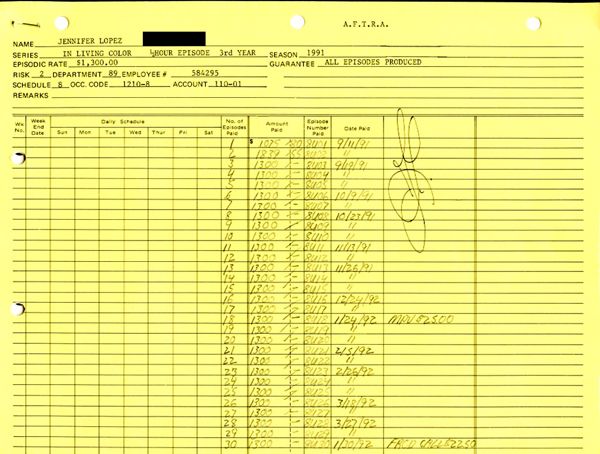 A.F.T.R.A.
NAME JENNIFER LOPEZ
SERIES IN LIVING COLOR ½HOUR EPISODE 3rd YEAR SEASON 1991
EPISODIC RATE $1,300.00 GUARANTEE ALL EPISODES PRODUCED
RISK 2 DEPARTMENT 89 EMPLOYEE # 584295
SCHEDULE 8 OCC. CODE 1210-8 ACCOUNT 110-01
REMARKS
Wk. No. Week End Date Daily Schedule No. of Episodes Paid Amount Paid Episode Number Paid Date Paid
Sun Mon Tue Wed Thur Fri Sat
1 $ 1075 8401 9/11/91
2 1839 55 8402 "
3 1300 - 8403 9/19/91
4 1300 - 8404 "
5 1300 - 8405 "
6 1300 - 8406 10/9/91
7 1300 - 8407 "
8 1300 - 8408 10/23/91
9 1300 - 8409 "
10 1300 - 8410 "
11 1300 - 8411 11/13/91
12 1300 - 8412 "
13 1300 - 8413 11/26/91
14 1300 - 8414 "
15 1300 - 8415 "
16 1300 - 8416 12/24/92
17 1300 - 8417 "
18 1300 - 8418 1/24/92
19 1300 - 8419 "
20 1300 - 8420 "
21 1300 - 8421 2/5/92
22 1300 - 8422 "
23 1300 - 8423 2/26/92
24 1300 - 8424 "
25 1300 - 8425 "
26 1300 - 8426 3/18/92
27 1300 - 8427 "
28 1300 - 8428 3/27/92
29 1300 - 8429 "
30 1300 - 8430 1/30/92